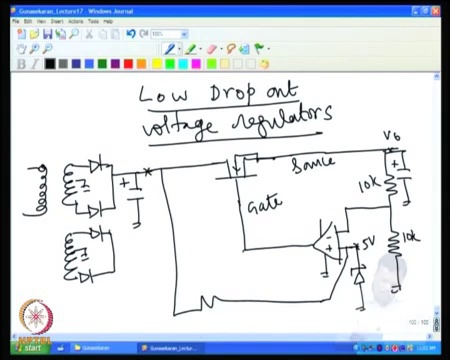 Gunasekaran_Lecture17 - Windows Journal
File Edit View Insert Actions Tools Help
100%
B I
Low Drop out
voltage regulators
Vo
Source
10k
Gate
5V
10k
+
+
-
+
100 / 100
NPTEL
start
Gunasekaran
Gunasekaran_Lectur...